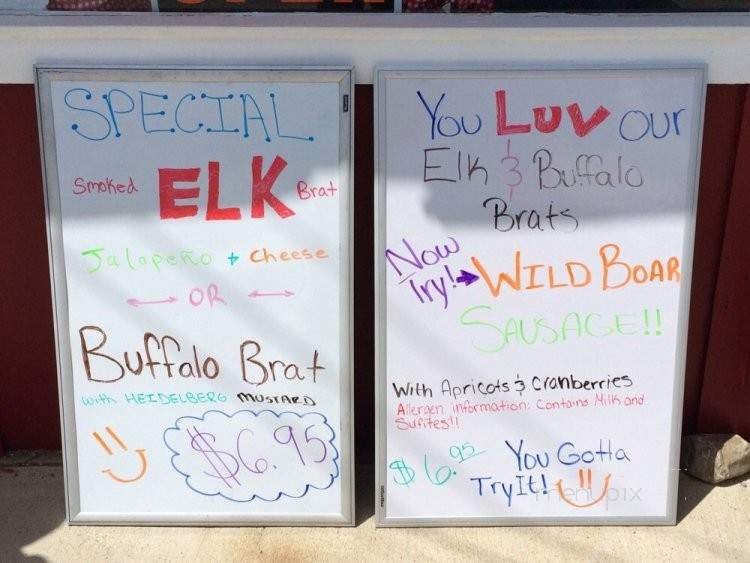 SPECIAL
Smoked ELK Brat
Jalapeño + cheese
OR
Buffalo Brat
with HEIDELBERG MUSTARD
$6.95
You Luv our
Elk & Buffalo
Brats
Now
Try! WILD BOAR
SAUSAGE!!
With Apricots & Cranberries
Allergen information: Contains Milk and
Sulfites!!
$6.95 You Gotta
Try It!
menupix